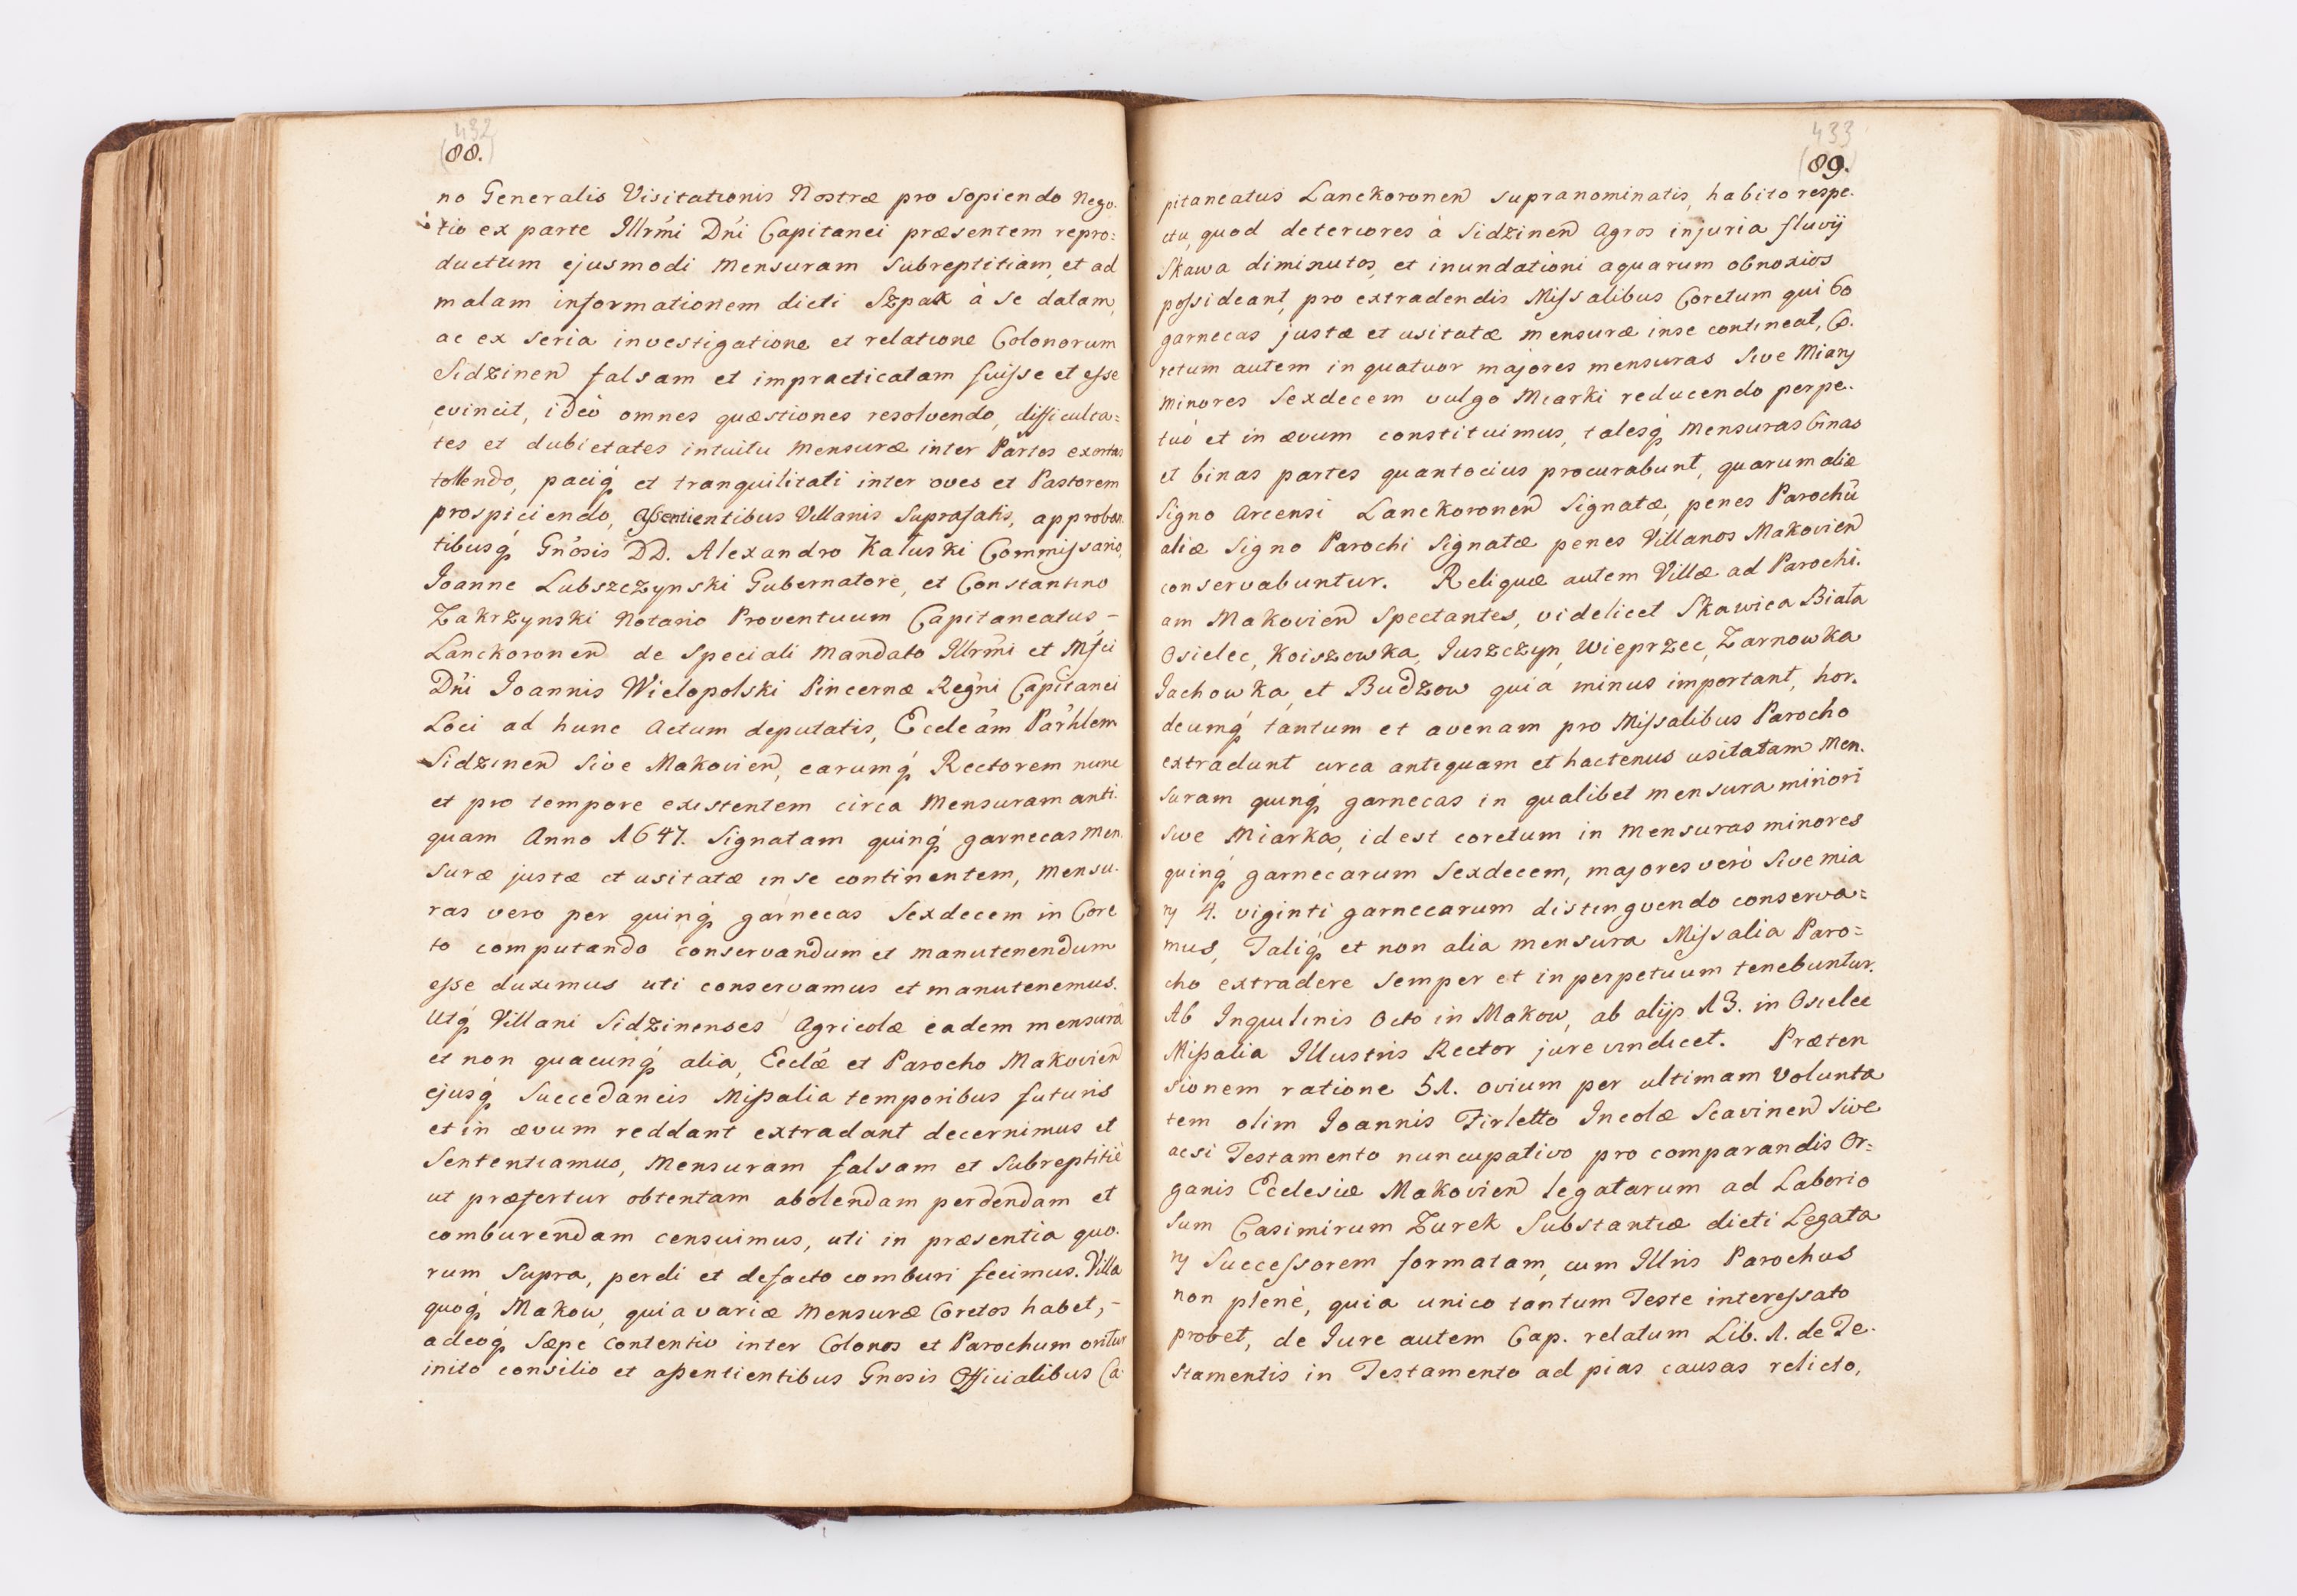 432
(88.)
no Generalis Visitationis Nostræ pro sopiendo Nego-
tio ex parte Illrm̃i Dñi Capitanei præsentem repro=
ductum ejusmodi Mensuram Subreptitiam, et ad
malam informationem dicti Szpak à se datam,
ac ex seria investigatione et relatione Colonorum
Sidzinen falsam et impracticatam fuisse et esse
evincit, ideò omnes quæstiones resolvendo, difficulta=
tes et dubietates intuitu Mensuræ inter Partes exortas
tollendo, paciq́ et tranquilitati inter oves et Pastorem
prospiciendo, assentientibus Villanis Suprafatis, approban
tibusq́ Gñosis DD. Alexandro Kałuski Commissario,
Joanne Lubszczynski Gubernatore, et Constantino
Zakrzynski Notario Proventuum Capitaneatus –
Lanckoronen de speciali Mandato Illrm̃i et Mf́ci
Dñi Joannis Wielopolski Pincernæ Regñi Capitanei
Loci ad hunc Actum deputatis, Eccleãm Par̃hlem
Sidzinen Sive Makovien, earumq́ Rectorem nunc
et pro tempore existentem circa Mensuram anti-
quam Anno 1647. Signatam quinq́ garnecas Men-
suræ justæ et usitatæ in se continentem, Mensu-
ras vero per quinq́ garnecas Sexdecem in Core
to computando conservandum et manutenendum
esse duximus uti conservamus et manutenemus.
Utq́ Villani Sidzinenses Agricolæ eadem mensurâ
et non quacunq́ alia, Ecclæ̃ et Parocho Makovien
ejusq́ Succedaneis Missalia temporibus futuris
et in ævum reddant extradant decernimus et
Sententiamus, Mensuram falsam et Subreptitiè
ut præfertur obtentam abolendam perdendam et
comburendam censuimus, uti in præsentia quo-
rum supra, perdi et defacto comburi fecimus. Villa
quoq́ Makow, quia variæ Mensuræ Coretos habet, –
adeoq́ sæpe Contentio inter Colonos et Parochum oritur
inito consilio et assentientibus Gnosis Officialibus Ca-
433
(89.)
pitaneatus Lanckoronen supranominatis, habito respe-
ctu, quod deteriores à Sidzinen Agros injuria fluvij
Skawa diminutos, et inundationi aquarum obnoxios
possideant, pro extradendis Missalibus Coretum qui 60
garnecas justæ et usitatæ mensuræ in se contineat, Co-
retum autem in quatuor majores mensuras Sive Miary
minores Sexdecem vulgo Miarki reducendo perpe-
tuò et in ævum constituimus, talesq́ Mensuras binas
et binas partes quantocius procurabunt, quarum aliæ
Signo Arcensi Lanckoronen Signatæ, penes Parochũ
aliæ Signo Parochi Signatæ penes Villanos Makovien
conservabuntur. Reliquæ autem Villæ ad Parochi-
am Makovien Spectantes, videlicet Skawica Biała
Osielec, Koiszowka, Juszczyn, Wieprzec, Zarnowka
Jachowka, et Budzow quia minus important, hor-
deumq́ tantum et avenam pro Missalibus Parocho
extradunt circa antiquam et hactenus usitatam Men-
suram quinq́ garnecas in qualibet mensura minori
sive Miarka, id est coretum in Mensuras minores
quinq́ garnecarum Sexdecem, majores verò Sive mia
ry 4. viginti garnecarum distinguendo conserva=
mus, Taliq́ et non alia mensura Missalia Paro=
cho extradere Semper et in perpetuum tenebuntur.
Ab Inquilinis Octo in Makow, ab alijs 13. in Osielec
Missalia Illustris Rector jure vindicet. Præten
sionem ratione 51. ovium per ultimam Volunta
tem olim Joannis Firletto Incolæ Scavinen sive
acsi Testamento nuncupativo pro comparandis Or=
ganis Ecclesiæ Makovien legatarum ad Laborio
sum Casimirum Zurek Substantiæ dicti Legata
ry Successorem formatam, cum Illris Parochus
non plenè, quia unico tantum Teste interessato
probet, de Jure autem Cap. relatum Lib. 1. de Te-
stamentis in Testamento ad pias causas relicto,